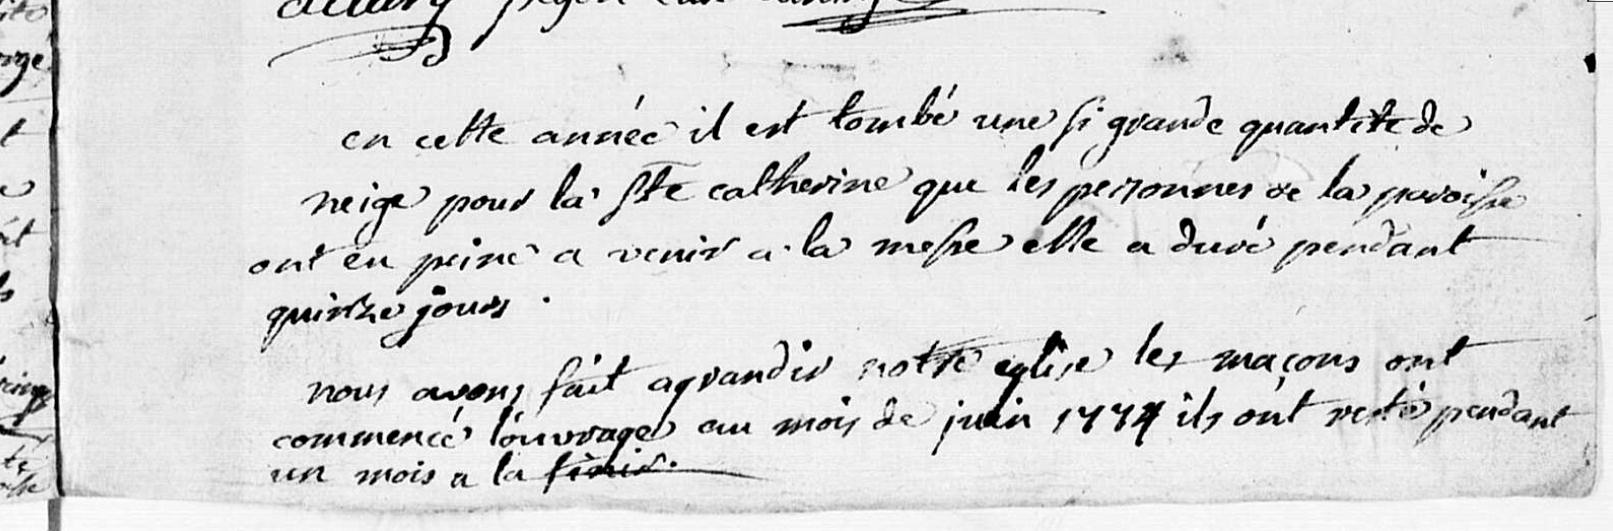 en cette année il est tombé une si grande quantite de
neige pour la Ste catherine que les personnes de la paroisse
ont eu peine a venir a la messe elle a duré pendant
quinze jours.
nous avons fait agrandir notre eglise les maçons ont
commencé l'ouvrage au mois de juin 1774 ils ont resté pendant
un mois a la finir.